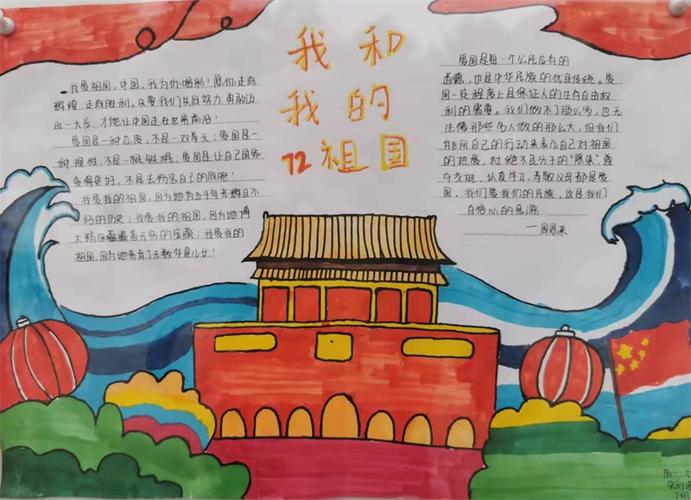 我和
我的
72祖国
我爱祖国,中国,我为你喝彩!愿你走向
辉煌,走向胜利。只要我们努力,勇敢迈
出一大步,才能让中国走在世界前沿!
爱国是一种态度,不是一双拳头;爱国是一
种理性,不是一股敏感;爱国是让自己国家
变得更好,不是去伤害自己的同胞!
我爱我的祖国,因为她有五千年
的历史;我爱我的祖国,因为她博
大精深蕴藏着无穷的宝藏;我爱我的
祖国,因为她养育了无数华夏儿女!
爱国是每一个公民应有的
道德,也是中华民族的优良传统。爱
国一定程度上是保证人的生存自由权
利的需要。我们做不了那么伟,也无
法像那些名人做的那么大,但我们
能向自己的行动来表示自己对祖国
的热爱,杜绝不良分子的
守交规,认真学习,孝敬父母都是爱
国,我们爱我们的民族,这是我们
自信心的泉源
—周恩来